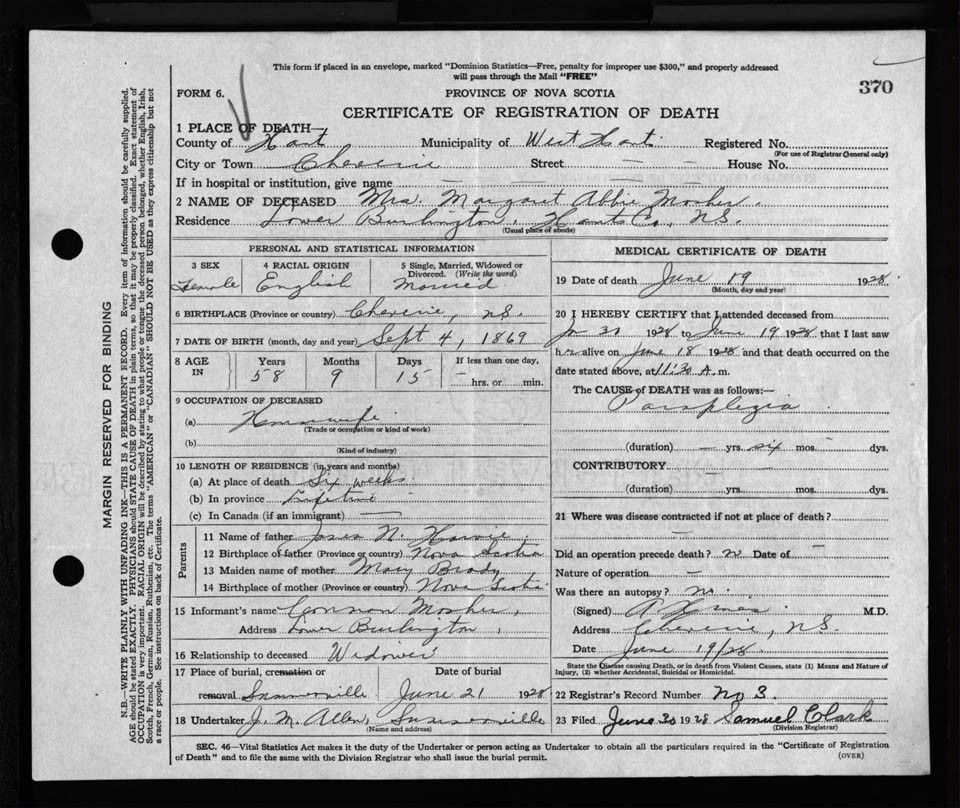 This form if placed in an envelope, marked "Dominion Statistics—Free, penalty for improper use $300," and properly addressed
will pass through the Mail "FREE"
370
FORM 6.
PROVINCE OF NOVA SCOTIA
CERTIFICATE OF REGISTRATION OF DEATH
1 PLACE OF DEATH—
County of Hants Municipality of West Hants Registered No.
(For use of Registrar General only)
City or Town Cheverie Street — — House No. —
If in hospital or institution, give name — — — — —
2 NAME OF DECEASED Mrs. Margaret Abbie Mosher.
Residence Lower Burlington, Hants Co, N.S.
(Usual place of abode)
PERSONAL AND STATISTICAL INFORMATION
3 SEX 4 RACIAL ORIGIN 5 Single, Married, Widowed or Divorced. (Write the word)
Female English Married
6 BIRTHPLACE (Province or country) Cheverie, N.S.
7 DATE OF BIRTH (month, day and year) Sept 4, 1869
8 AGE IN Years Months Days If less than one day,
58 9 15 — hrs. or — min.
9 OCCUPATION OF DECEASED
(a) Housewife.
(Trade or occupation or kind of work)
(b)
(Kind of industry)
10 LENGTH OF RESIDENCE (in years and months)
(a) At place of death Six weeks.
(b) In province Lifetime
(c) In Canada (if an immigrant) —
Parents
11 Name of father N. Harvie.
12 Birthplace of father (Province or country) Nova Scotia
13 Maiden name of mother Mary Brady,
14 Birthplace of mother (Province or country) Nova Scotia
15 Informant's name Mosher,
Address Lower Burlington,
16 Relationship to deceased Widower
17 Place of burial, cremation or removal Date of burial
Summerville June 21 1928
18 Undertaker J. M. Allen, Summerville
(Name and address)
MEDICAL CERTIFICATE OF DEATH
19 Date of death June 19 1928
(Month, day and year)
20 I HEREBY CERTIFY that I attended deceased from
Jan 1928 to June 19 1928 that I last saw
her alive on June 18 1928 and that death occurred on
date stated above, at 11:30 A.m.
The CAUSE of DEATH was as follows:—
Paraplegia.
(duration) — yrs. six mos. — dys.
CONTRIBUTORY. —
(duration) — yrs. — mos. — dys.
21 Where was disease contracted if not at place of death?
—
Did an operation precede death? no Date of —
Nature of operation —
Was there an autopsy? no.
(Signed) M.D.
Address Cheverie, N.S.
Date June 19/28.
State the Disease causing Death, or in death from Violent Causes, state (1) Means and Nature of
Injury, (2) whether Accidental, Suicidal or Homicidal.
22 Registrar's Record Number No 3.
23 Filed June 30 1928 Samuel Clark
(Division Registrar)
SEC. 46—Vital Statistics Act makes it the duty of the Undertaker or person acting as Undertaker to obtain all the particulars required in the "Certificate of Registration
of Death" and to file the same with the Division Registrar who shall issue the burial permit.
(OVER)
MARGIN RESERVED FOR BINDING
N.B.—WRITE PLAINLY WITH UNFADING INK—THIS IS A PERMANENT RECORD. Every item of information should be carefully supplied.
AGE should be stated EXACTLY. PHYSICIANS should STATE CAUSE OF DEATH in plain terms, so that it may be properly classified. Exact statement of
OCCUPATION is very important. RACIAL ORIGIN will be described by stating to what people or tongue the deceased person belonged, whether English, Irish,
Scotch, French, German, Russian, Ruthenian, etc. The terms "AMERICAN" or "CANADIAN" SHOULD NOT BE USED as they express citizenship but not
a race or people. See instructions on back of Certificate.